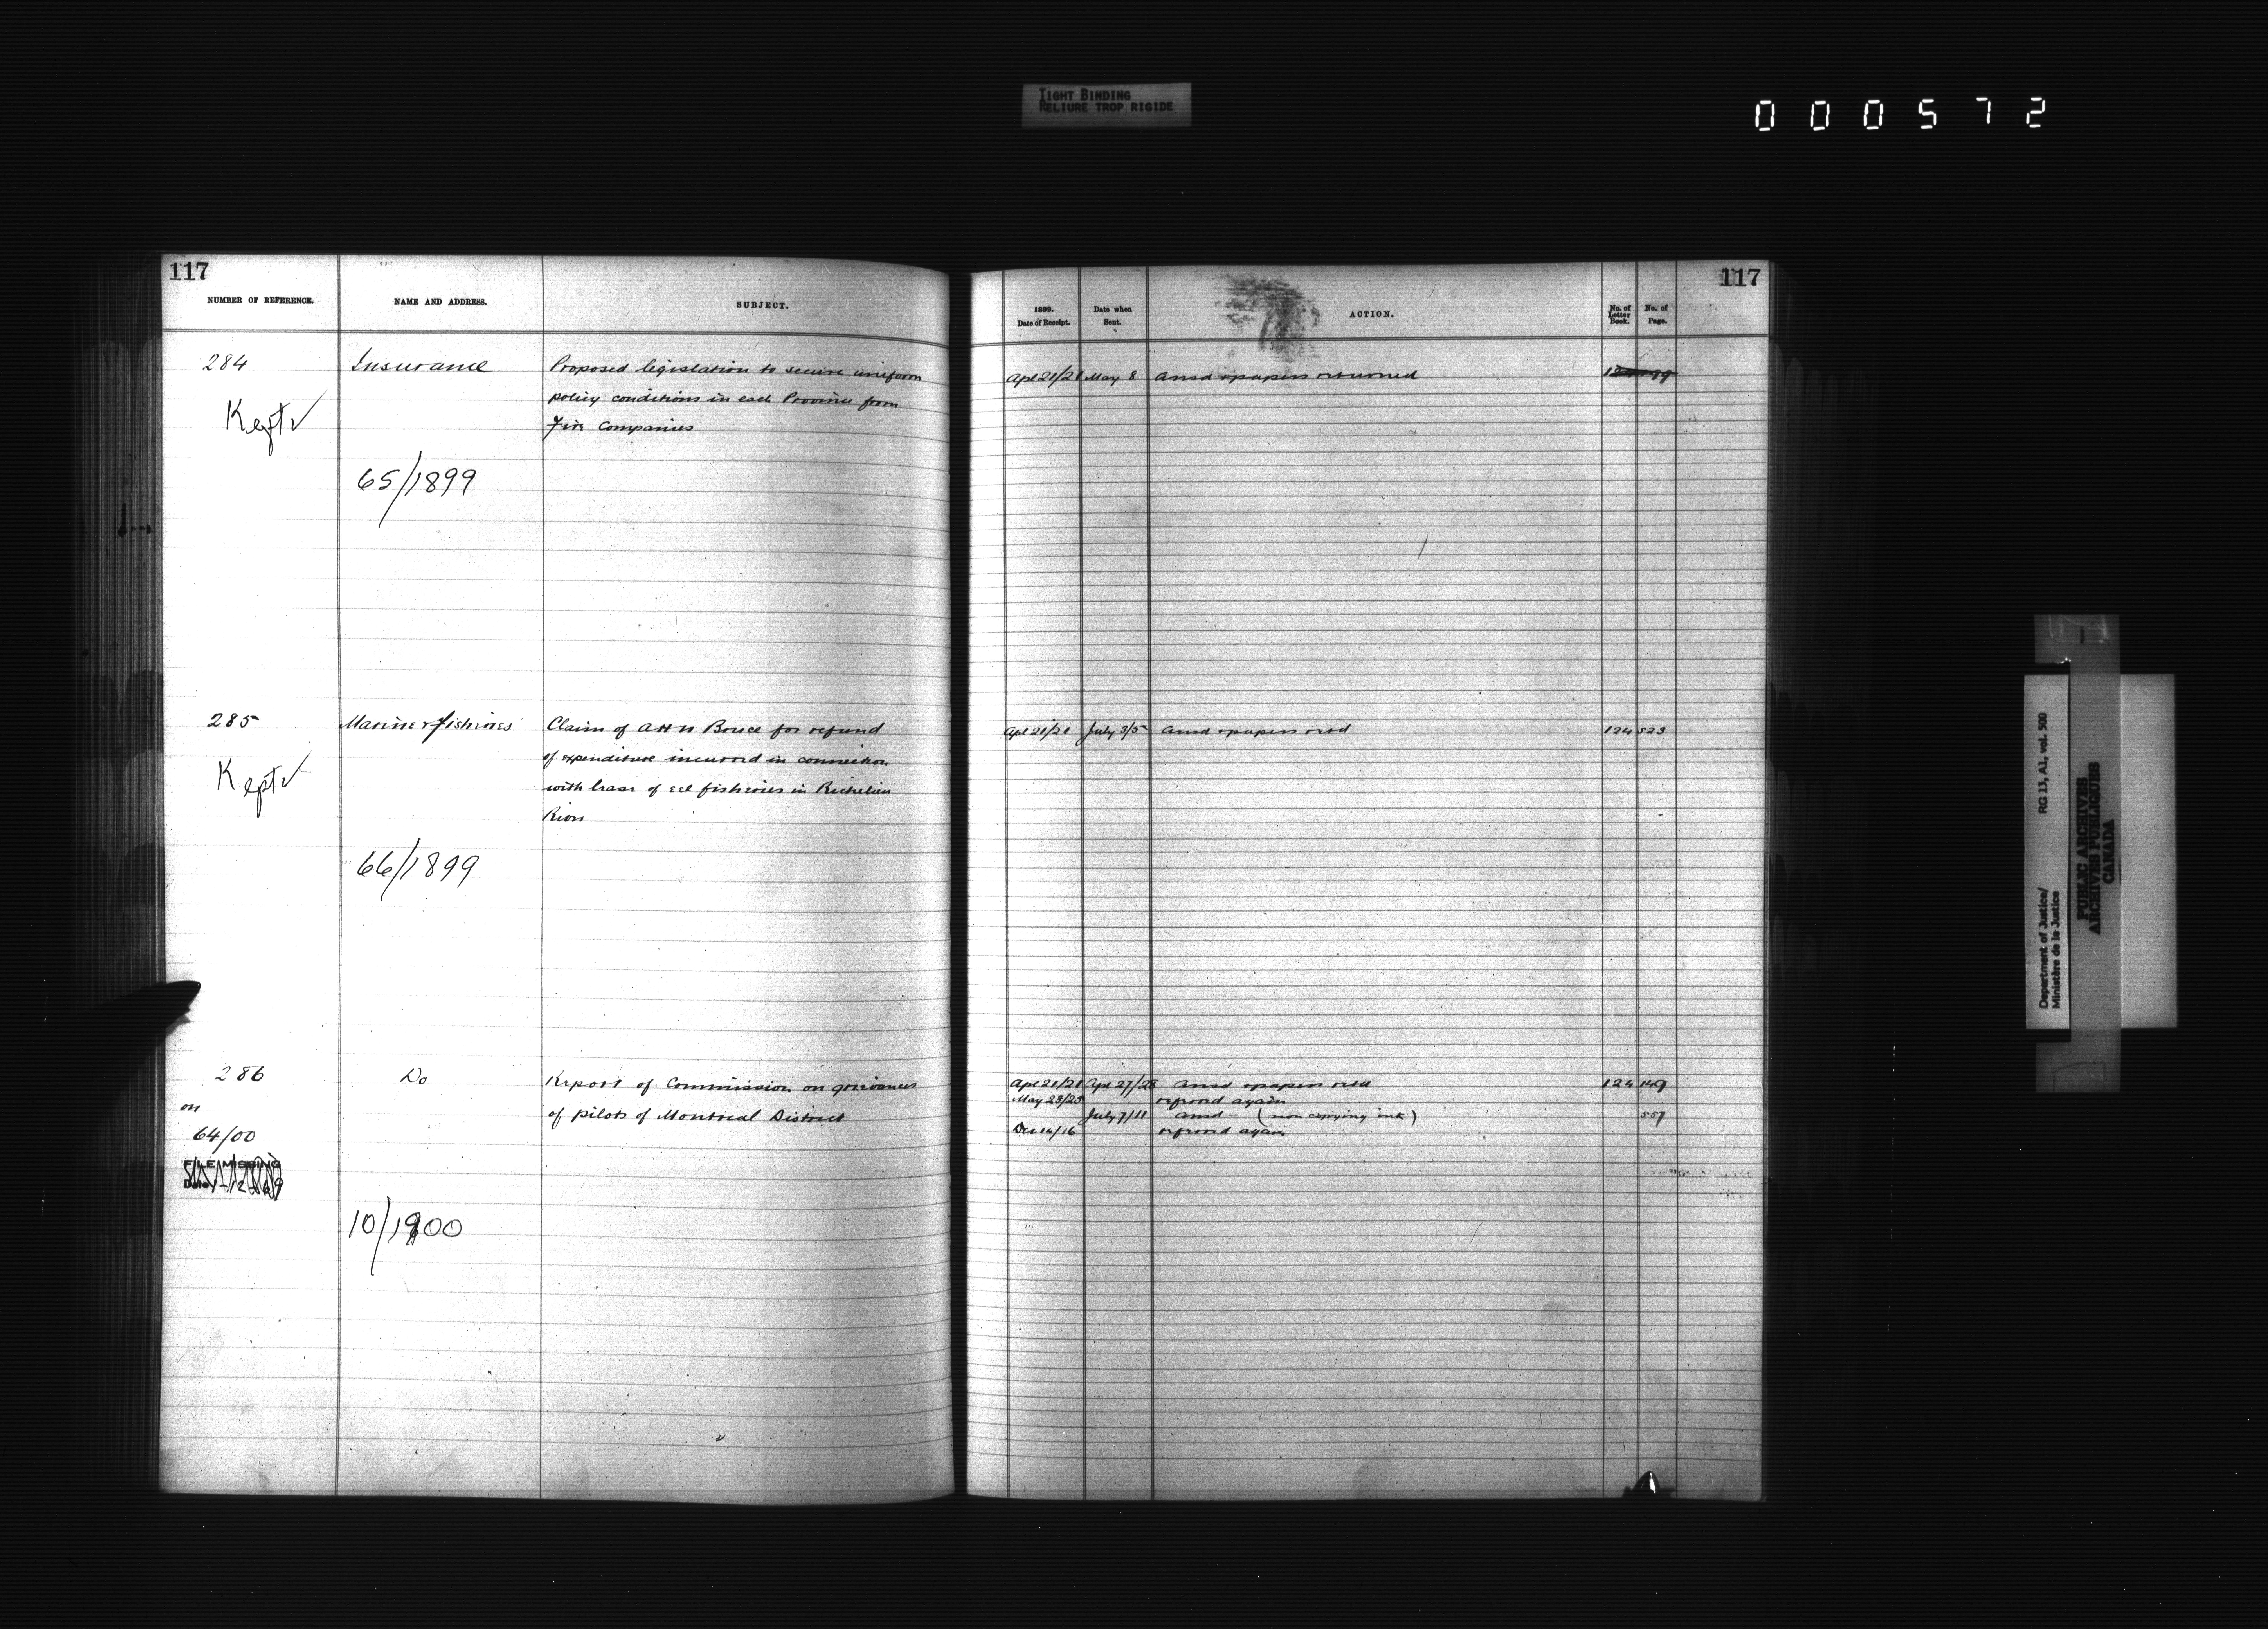 TIGHT BINDING
RELIURE TROP RIGIDE
000572
117
NUMBER OF REFERENCE.
NAME AND ADDRESS.
SUBJECT.
284
Insurance
Proposed legislation to secure uniform
policy conditions in each Province from
Fire Companies
Kept ✓
65/1899
285
Marine & Fisheries
Claim of A H N Bruce for refund
of expenditure incurred in connection
with lease of eel fisheries in Richelieu
River
Kept ✓
66/1899
286
Do
Report of Commission on grievances
of pilots of Montreal District
on
64/00
FILE MISSING
Date
10/1900
117
1899.
Date of Receipt.
Date when
Sent.
ACTION.
No. of
Letter
Book.
No. of
Page.
Apl 21/21 May 8 ansd & papers returned
Apl 21/21 July 3/5 ansd & papers retd 124 523
Apl 21/21 Apl 27/28 ansd & papers retd 124 149
May 23/25 referred again
July 7/11 ansd – (non copying ink) 557
Dec 14/16 referred again
Department of Justice/
Ministère de la Justice
RG 13, A1, vol. 500
PUBLIC ARCHIVES
ARCHIVES PUBLIQUES
CANADA